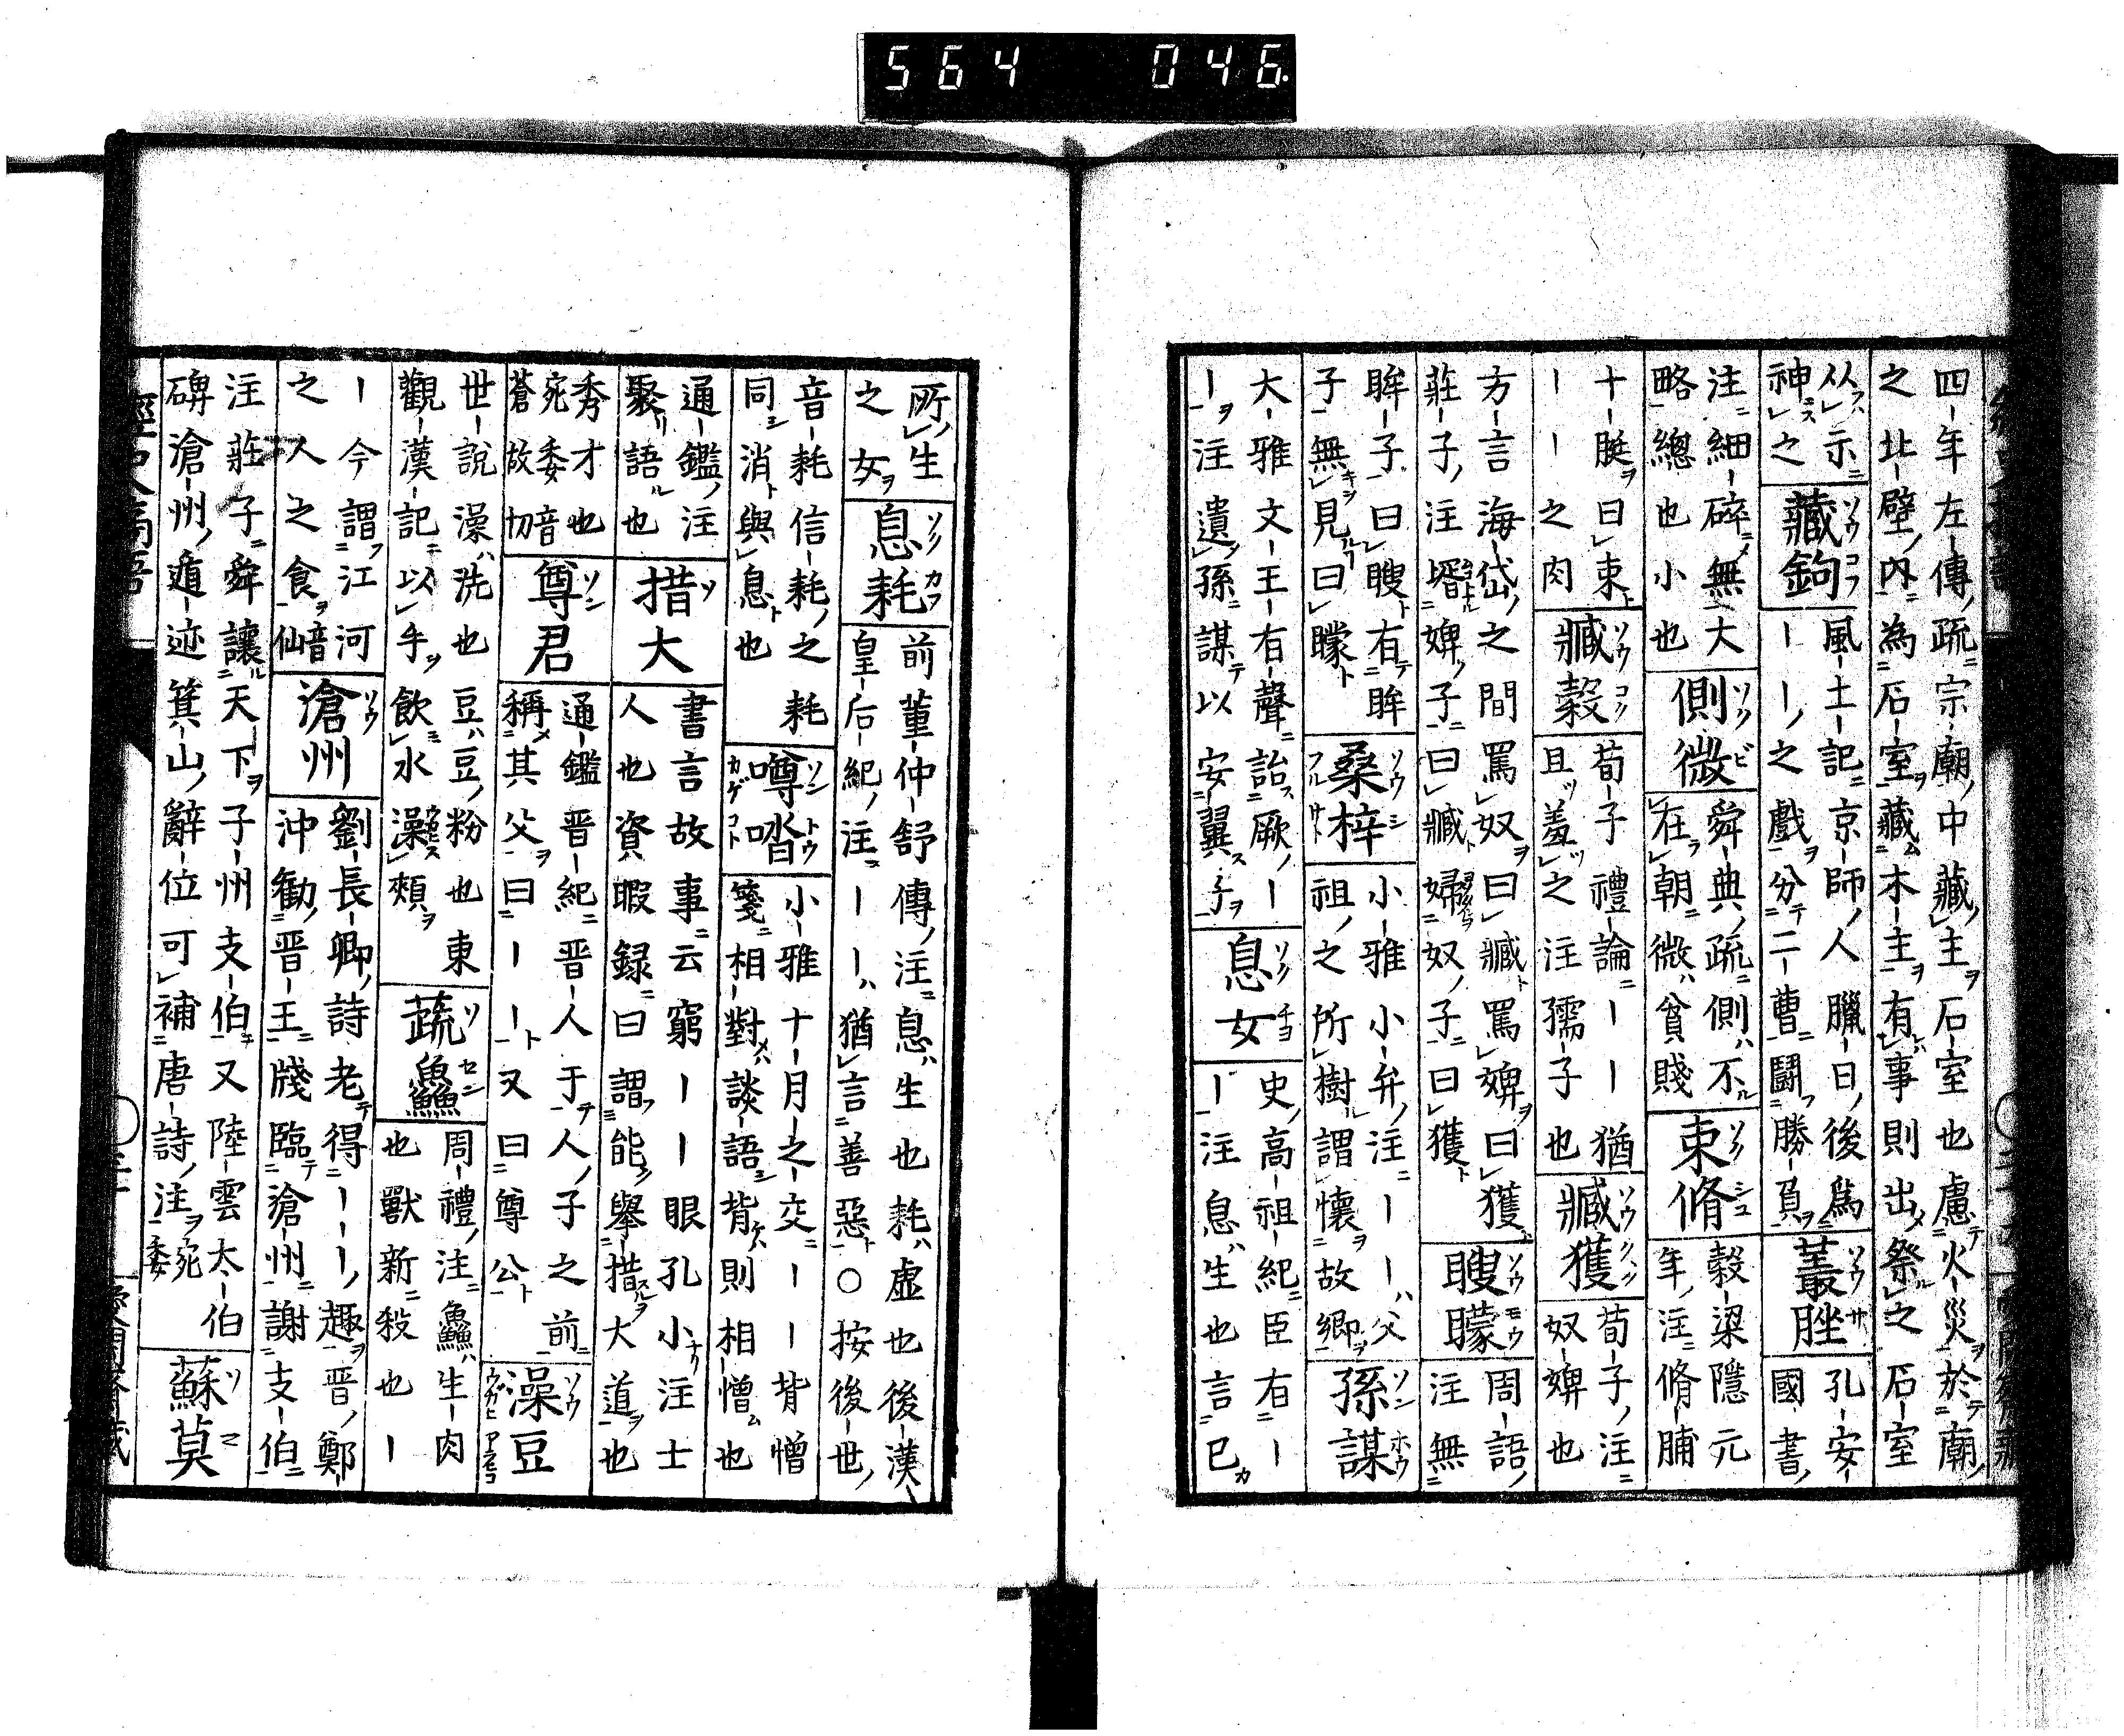 564 046
四年左傳疏宗廟中藏主石室也慮火災於廟
之北壁内為石室藏木主有事則出祭之石室
从示
神之
藏鉤
風土記京師人臘日後為
ーー之戲分二曹鬪勝負
叢脞
孔安
國書
注細碎無大
略總也小也
側微
舜典疏側不
在朝微貧賤
束脩
穀梁隱元
年注脩脯
十脡曰束
ーー之肉
臧穀
荀子禮論ーー猶
且羞之注孺子也
臧獲
荀子注
奴婢也
方言海岱之間罵奴曰臧罵婢曰獲
莊子注壻婢子曰臧婦奴子曰獲
瞍矇
周語
注無
眸子曰瞍有眸
子無見曰矇
桑梓
小雅小弁注ーー父
祖之所樹謂懷故鄉
孫謀
大雅文王有聲詒厥ー
ー注遺孫謀以安翼子
息女
史高祖紀臣有ー
ー注息生也言已
所生
之女
息耗
前董仲舒傳注息生也耗虛也後漢
皇后紀注ーー猶言善惡○按後世
音耗信耗之耗
同消與息也
噂喈
小雅十月之交ーー背憎
箋相對談語背則相憎也
通鑑注
聚語也
措大
書言故事云窮ーー眼孔小注士
人也資暇録曰謂能舉措大道也
秀才也
宛委音
蒼故切
尊君
通鑑晋紀晋人于人子之前
稱其父曰ーー又曰尊公
澡豆
世說澡洗也豆豆粉也東
觀漢記以手飲水澡頰
蔬鱻
周禮注鱻生肉
也獸新殺也ー
ー今謂江河
之人之食
滄州
劉長卿詩老得ーー趣晋鄭
沖勸晋王牋臨滄州謝支伯
注莊子舜讓天下子州支伯又陸雲太伯
碑滄州遁迹箕山辭位可補唐詩注
宛委
蘇莫